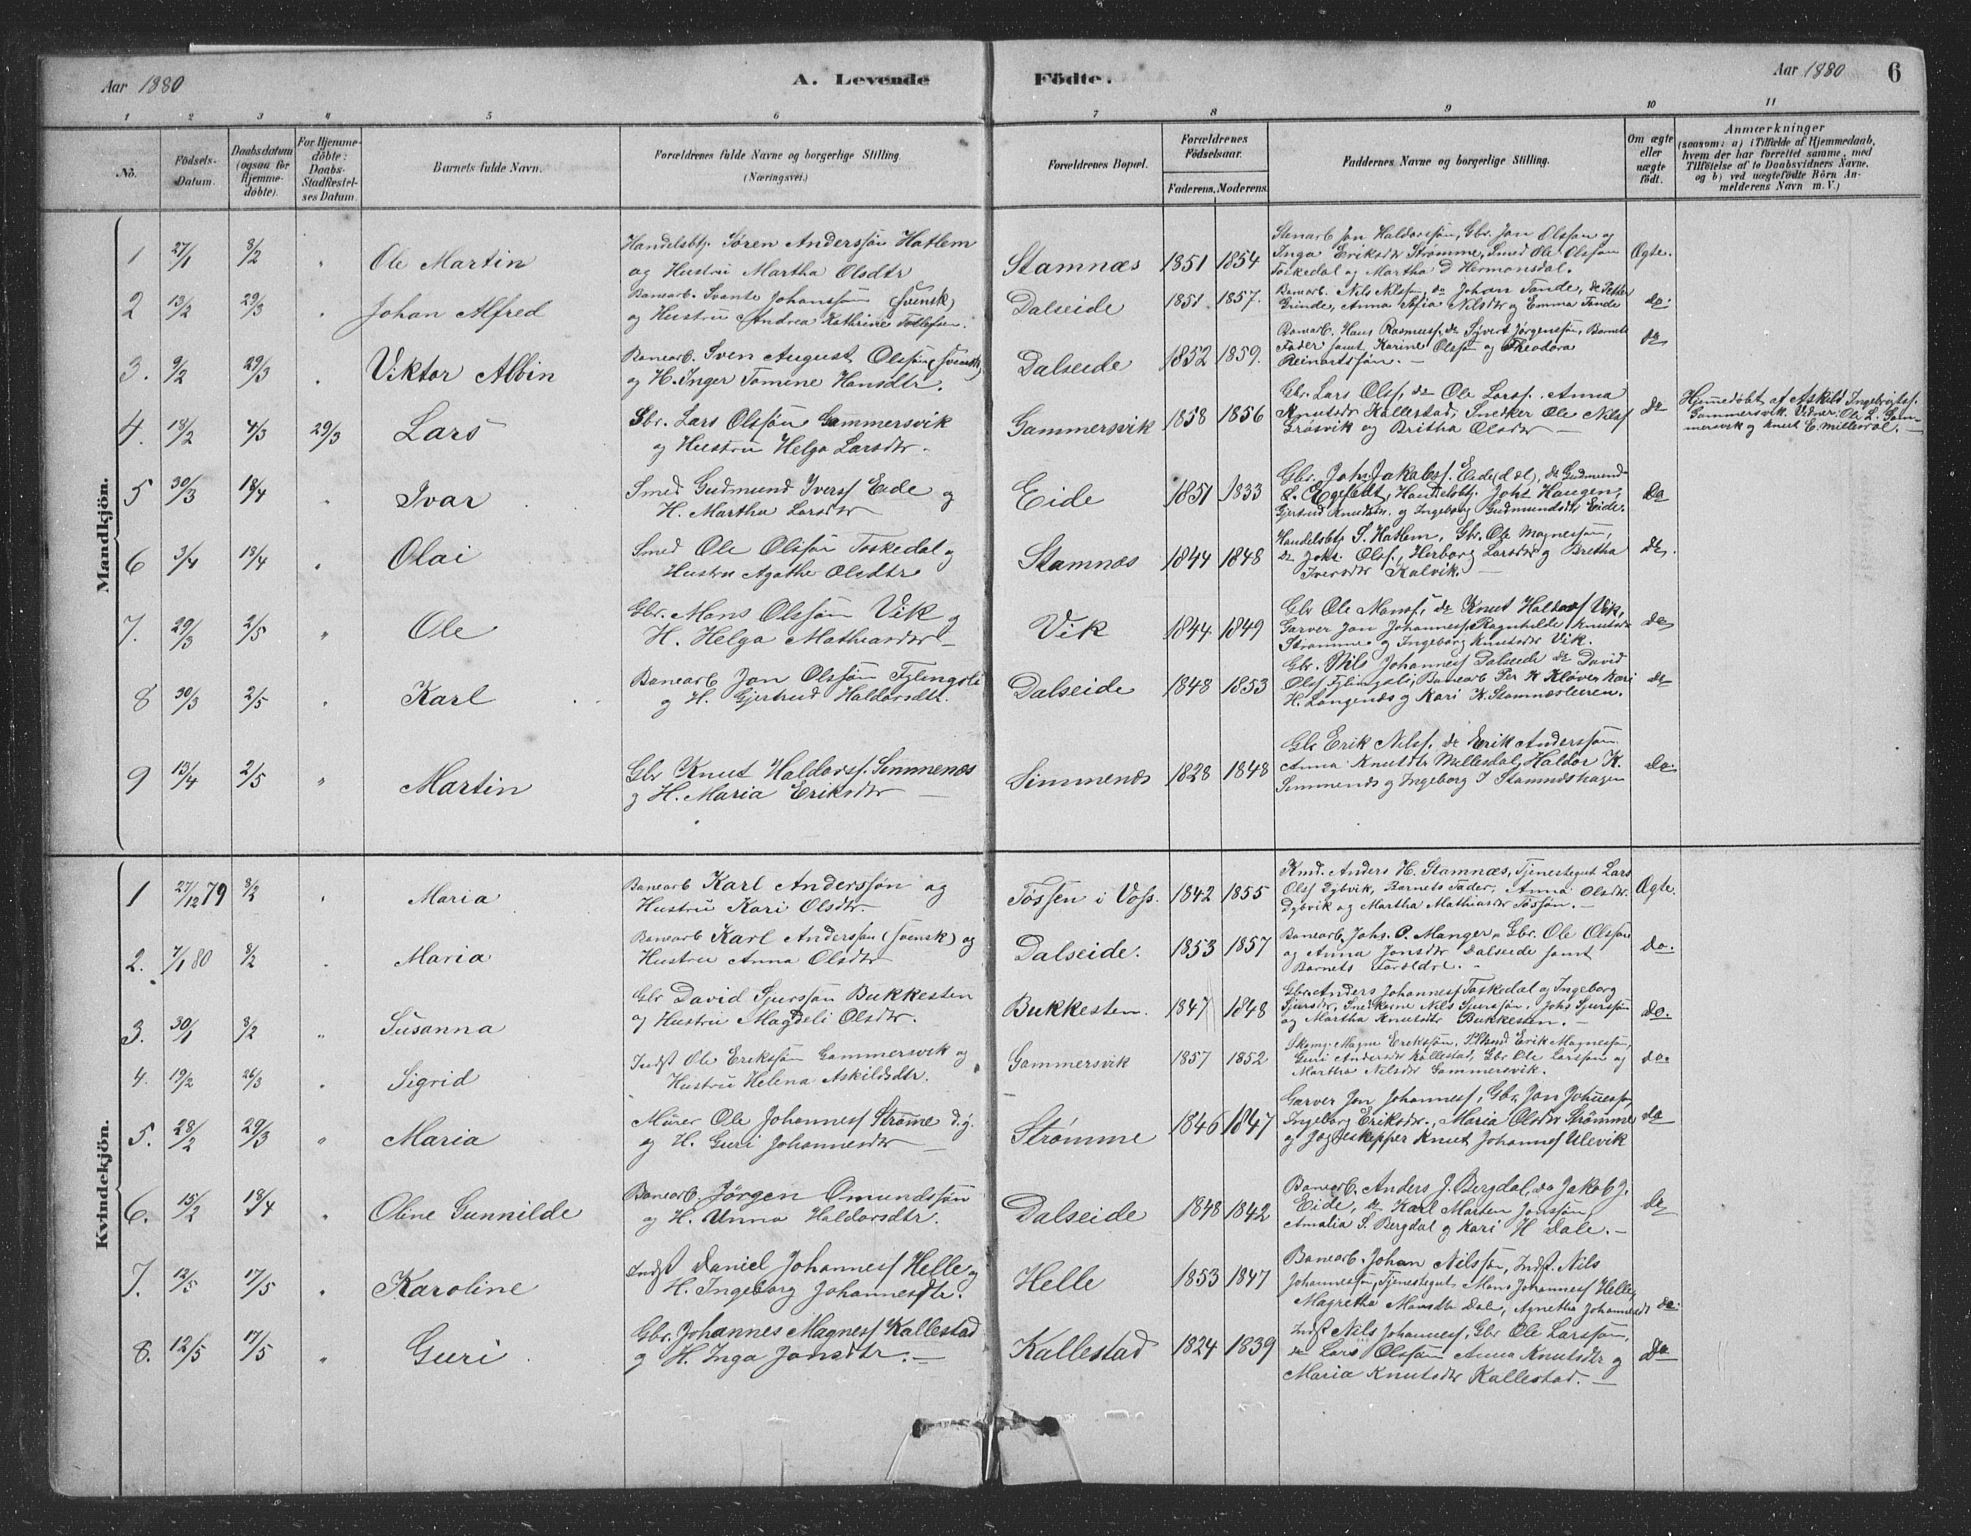 Aar 1880 A. Levende Födte. Aar 1880 6
1 2 3 4 5 6 7 8 9 10 11
No.
Födsels-Datum.
Daabsdatum (ogsaa for Hjemmedöbte).
For Hjemmedöbte: Daabs-Stadfæstelses Datum.
Barnets fulde Navn.
Forældrenes fulde Navne og borgerlige Stilling. (Næringsvei.)
Forældrenes Bopæl.
Forældrenes Födselsaar. Faderens. Moderens.
Faddernes Navne og borgerlige Stilling.
Om ægte eller uægte födt.
Anmærkninger
(saasom: a) i Tilfælde af Hjemmedaab,
hvem der har forrettet samme, med
Tilföielse af to Daabsvidners Navne,
og b) ved uægtefödte Börn Anmelderens Navn m. V.)
Mandkjön.
1 27/1 8/2 " Ole Martin
Handelsbtj. Søren Anderssøn Hatlem
og Hustru Martha Olsdtr
Stamnæs 1851 1854
Stenarb Jon Haldorssøn, Gbr. Jon Olssøn og
Inga Eriksdr Strømme, Smed Ole Olssøn
Toskedal og Martha D Hermonsdal.
Ægte.
2 13/2 29/3 " Johan Alfred
Banearb. Svante Johanssøn (svensk)
og Hustru Andrea Kathrine Tollefsen.
Dalseide 1851 1857.
Banearb. Nils Nilssøn, do Johan Tande, do Petter
Grinde, Anna Sofia Nilsdr og Emma Tande
do.
3. 9/2 29/3 " Viktor Albin
Banearb. Sven August Olssøn (svensk)
og H. Inger Tomine Hansdtr.
Dalseide 1852 1859.
Banearb. Hans Rasmuss. do Syvert Jørgenssøn, Barnets
Fader samt Karine Olssøn og Theodora
Reinartssøn.
do
4. 18/2 4/3 29/3 Lars
Gbr. Lars Olssøn Gammersvik
og Hustru Helga Larsdr.
Gammersvik 1858 1856
Gbr. Lars Olss, do Ole Larss. Anna
Knutsdr Kallestad, Snedker Ole Nilss
Grøsvik og Britha Olsdr
do
Hjemmedøbt af Askild Ingebrigtss.
Gammersvik. Vidner: Ole L. Gammersvik
og Knut E. Millesdal.
5 30/3 18/4 " Ivar
Smed Gudmund Iverss Eide og
H. Martha Larsdr
Eide 1851 1833
Gbr. Joh. Jakobss. Eide (d.æl), do Gudmund
L. Egefeldt, Handelsbtj. Johs Haugen,
Gjertrud Knutsdr. og Ingeborg Gudmundsdtr Eide.
do
6 3/4 18/4 " Olai
Smed Ole Olssøn Toskedal og
Hustru Agathe Olsdtr
Stamnæs 1844 1848
Handelsbtj S. Hatlem, Gbr. Ole Magnessøn,
do Johs. Olss., Herborg Larsdr og Bretha
Iversdr Kalvik.
do.
7. 29/3 2/5 " Ole
Gbr. Mons Olssøn Vik og
H. Helga Mathiasdr
Vik 1844 1849
Gbr Ole Monss, do Knut Haldorss Vik,
Garver Jon Johanness, Ragnhilde Knutsdr
Strømme og Ingeborg Knutsdr Vik.
do
8 30/3 2/5 " Karl
Banearb Jon Olssøn Fylingsli
og H. Gjertrud Haldorsdtr.
Dalseide 1848 1853
Gbr. Nils Johanness Dalseide do David
Olss Fylingsli, Banearb Per K Kløver Kari
H. Langenæs og Kari K. Stamnæsleeren.
do
9 13/4 2/5 " Martin
Gbr Knut Haldorss. Simmenæs
og H. Maria Eriksdr
Simmenæs 1828 1848
Gbr Erik Nilss, do Erik Anderssøn.
Anna Knutsdr Millesdal, Haldor K.
Simmenæs og Ingeborg J Stamnæshagen
do.
Kvindekjön.
1 27/12 79 8/2 " Maria
Banearb Karl Anderssøn og
Hustru Kari Olsdr.
Tøssen i Voss. 1842 1855
Knd. Anders H. Stamnæs, Tjenestegut Lars
Olss Dybvik, Barnets Fader, Anna Olsdr
Dybvik og Martha Mathiasdr Tøssøn.
Ægte.
2. 7/1 80 8/2 " Maria
Banearb Karl Anderssøn (svensk) og
Hustru Anna Olsdr
Dalseide. 1853 1857
Banearb. Johs. O. Manger, Gbr. Ole Olssøn
og Anna Jonsdr Dalseide samt
Barnets Forældre.
do.
3. 30/1 8/2 " Susanna
Gbr David Sjurssøn Bukkesten
og Hustru Magdeli Olsdr.
Bukkesten. 1847 1848
Gbr. Anders Johanness Toskedal og Ingeborg
Sjursdr, Snedkerne Nils Sjurssøn, Johs Sjurssøn
og Martha Knutsdr Bukkesten.
do.
4. 19/2 26/3 " Sigrid
Indst Ole Erikssøn Gammersvik og
Hustru Helena Askildsdtr.
Gammersvik 1857 1852
Magne Erikssøn, Erik Magnessøn,
Guri Andersdr Kallestad, Gbr Ole Larssøn og
Martha Nilsdr Gammersvik.
do.
5. 28/2 29/3 " Maria
Murer Ole Johanness Strømme d.y.
og H. Guri Johannesdr
Strømme 1846 1847
Garver Jon Johanness, Gbr. Jon Johness,
Ingeborg Eriksdr., Maria Olsdr Strømme
og Jagteskipper Knut Johanness Ulevik
do
6. 15/2 18/4 " Oline Gunnilde
Banearb. Jørgen Omundssøn
og H. Unna Haldorsdtr.
Dalseide 1848 1842
Banearb. Anders J. Bergdal, do Jakob J.
Eide, do Karl Marten Jonssøn,
Amalia S. Bergdal og Kari H Dale.
do
7. 12/5 17/5 " Karoline
Indst Daniel Johanness Helle og
H. Ingeborg Johannesdtr.
Helle 1853 1847
Banearb. Johan Nilssøn, Indst. Nils
Johannessøn, Tjenestegut Mons Johanness Helle,
Magretha Monsdtr Dale, Agnetha Johannesdt
do.
8. 12/5 17/5 " Guri
Gbr. Johannes Magness Kallestad
og H. Inga Jonsdtr.
Kallestad 1824 1839
Indst Nils Johanness, Gbr Ole Larssøn,
do Lars Olssøn Anna Knutsdr og
Maria Knutsdr Kallestad.
do